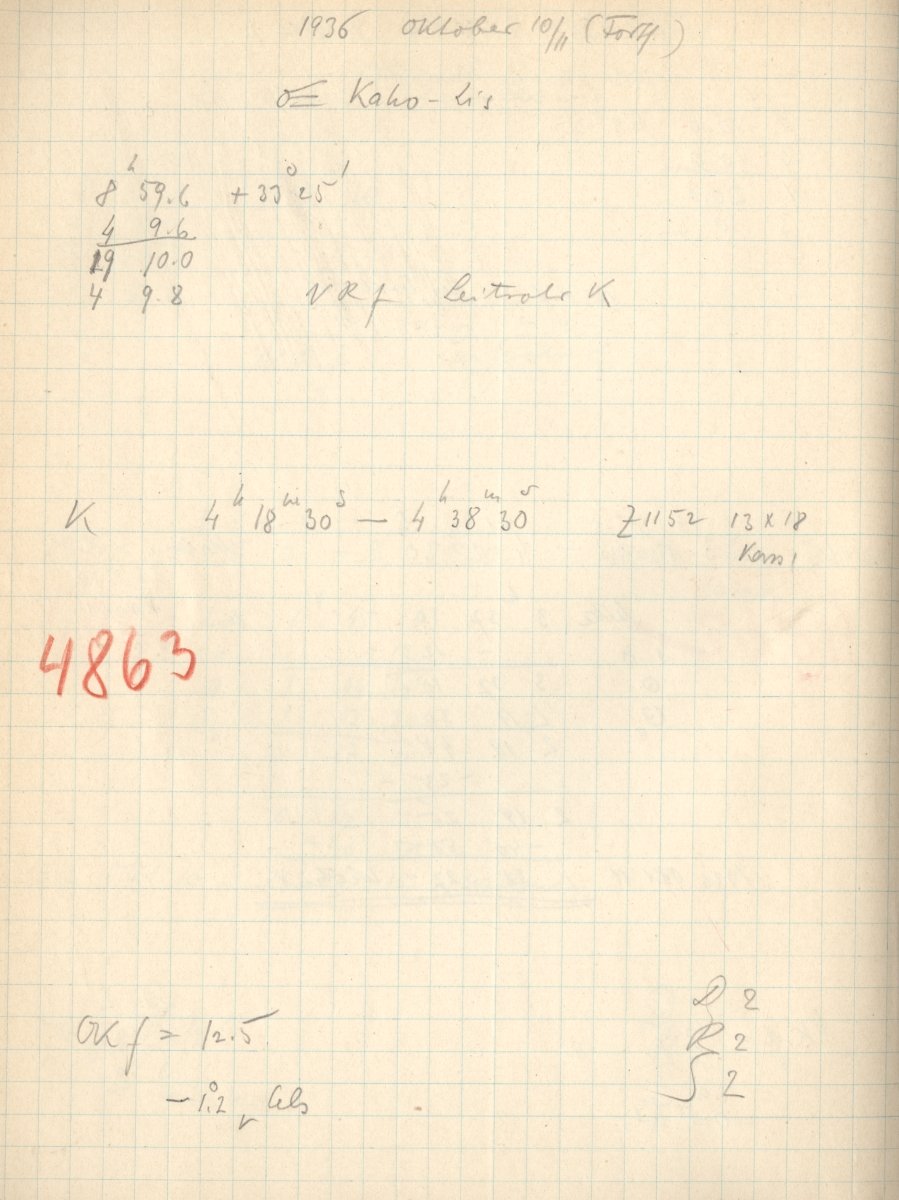 1936 Oktober 10/11 (Forts.)
Kaho-Lis
8ʰ 59.6 +33° 25'
4 9.6
19 10.0
4 9.8 VRf Leitrohr K
K 4ʰ 18ᵐ 30ˢ — 4ʰ 38ᵐ 30ˢ Z1152 13 x 18
Kass 1
4863
L 2
OKf = 12.5 R 2
-1.°2 Cels S 2